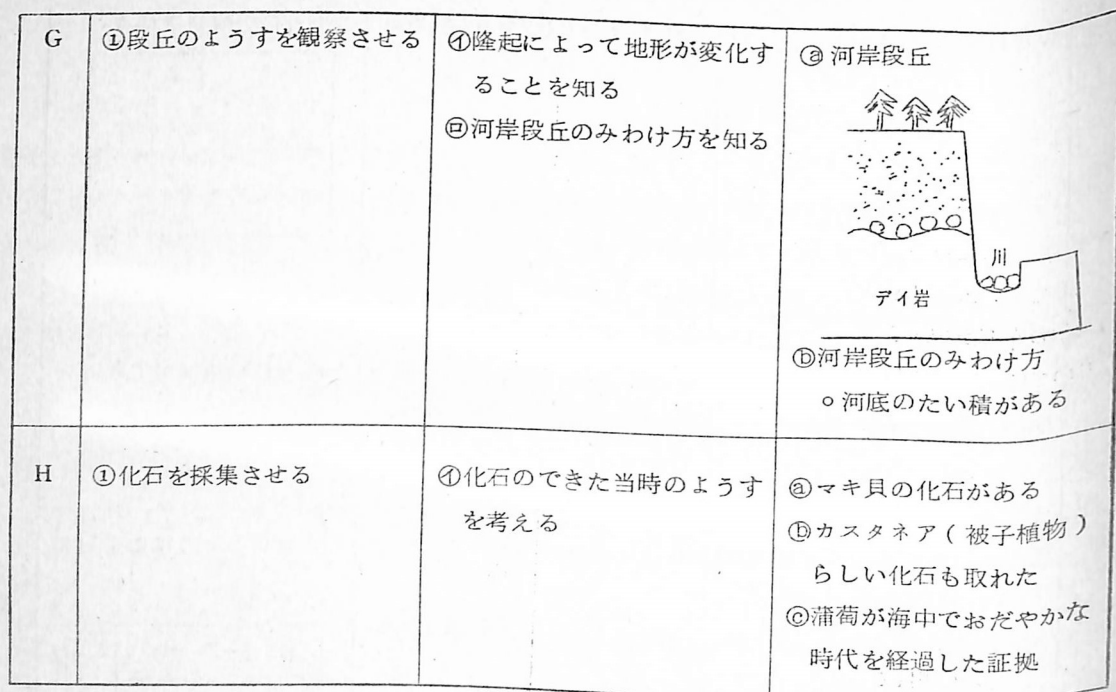 G
①段丘のようすを観察させる
㋑隆起によって地形が変化す
ることを知る
㋺河岸段丘のみわけ方を知る
ⓐ河岸段丘
川
デイ岩
ⓑ河岸段丘のみわけ方
○河底のたい積がある
H
①化石を採集させる
㋑化石のできた当時のようす
を考える
ⓐマキ貝の化石がある
ⓑカスタネア(被子植物)
らしい化石も取れた
ⓒ蒲萄が海中でおだやかな
時代を経過した証拠